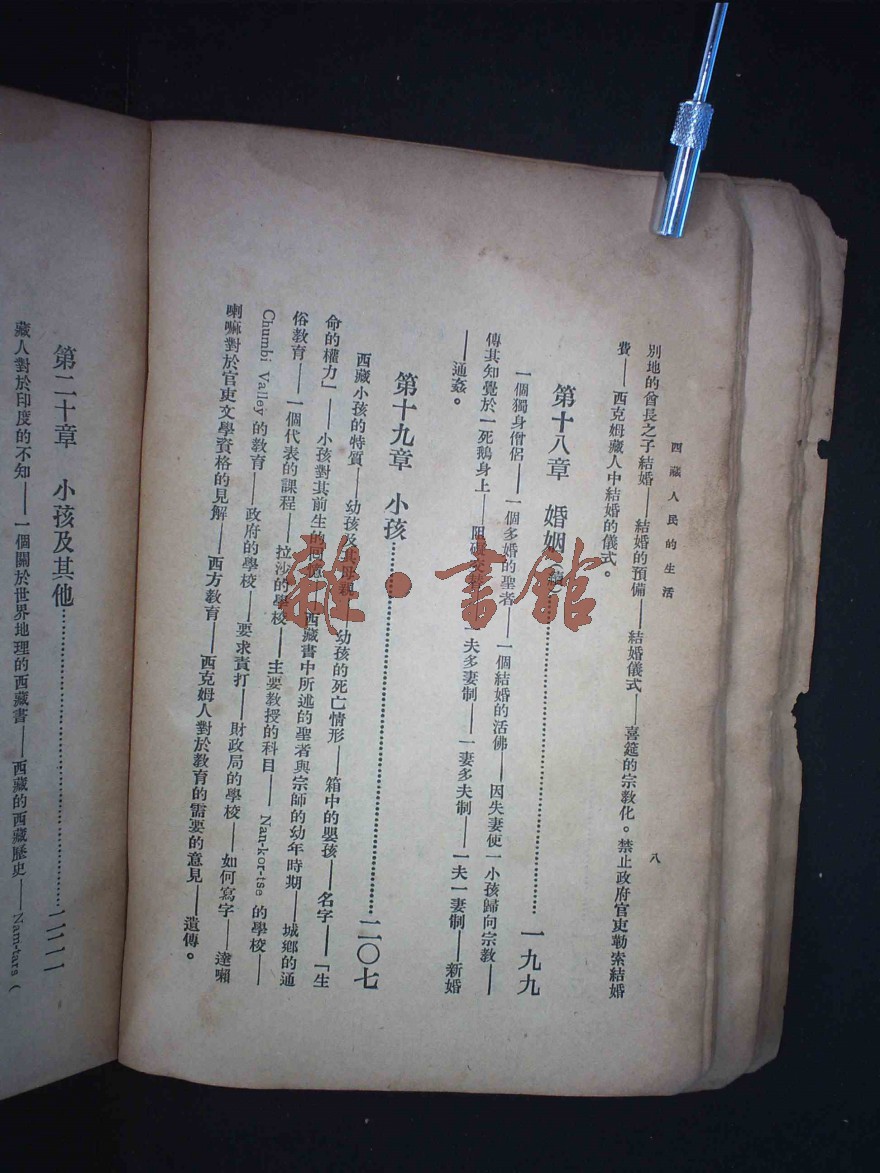 西藏人民的生活
八
別地的酋長之子結婚——結婚的預備——結婚儀式——喜筵的宗教化。禁止政府官吏勒索結婚
費——西克姆藏人中結婚的儀式。
第十八章 婚姻(續)……一九九
一個獨身僧侶——一個多婚的聖者——一個結婚的活佛——因失妻使一小孩歸向宗教——
傳其知覺於一死鵝身上——夫多妻制——一妻多夫制——一夫一妻制——新婚
——通姦。
第十九章 小孩……二〇七
西藏小孩的特質——幼孩及其母親——幼孩的死亡情形——箱中的嬰孩——名字——「生
命的權力」——小孩對其前生的回憶——西藏書中所述的聖者與宗師的幼年時期——城鄉的通
俗教育——一個代表的課程——拉沙的學校——主要教授的科目——Nan-kor-tse 的學校——
Chumbi Valley 的教育——政府的學校——要求責打——財政局的學校——如何寫字——達賴
喇嘛對於官吏文學資格的見解——西方教育——西克姆人對於教育的需要的意見——遺傳。
第二十章 小孩及其他……二二二
藏人對於印度的不知——一個關於世界地理的西藏書——西藏的西藏歷史——Nam-tars (
雜·書館